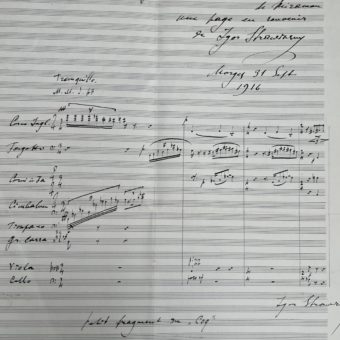 de Miraman
une page en souvenir
de Igor Strawinsky
Morges 31 Sept
1916
Tranquillo.
M. M. ♩ 63
Corno Ingl.
Fagotto
Corni in Fa
Cimbalom
Timpano
Gr. Cassa
Viola
Cello
Igor Straw
petit fragment du "Coq"